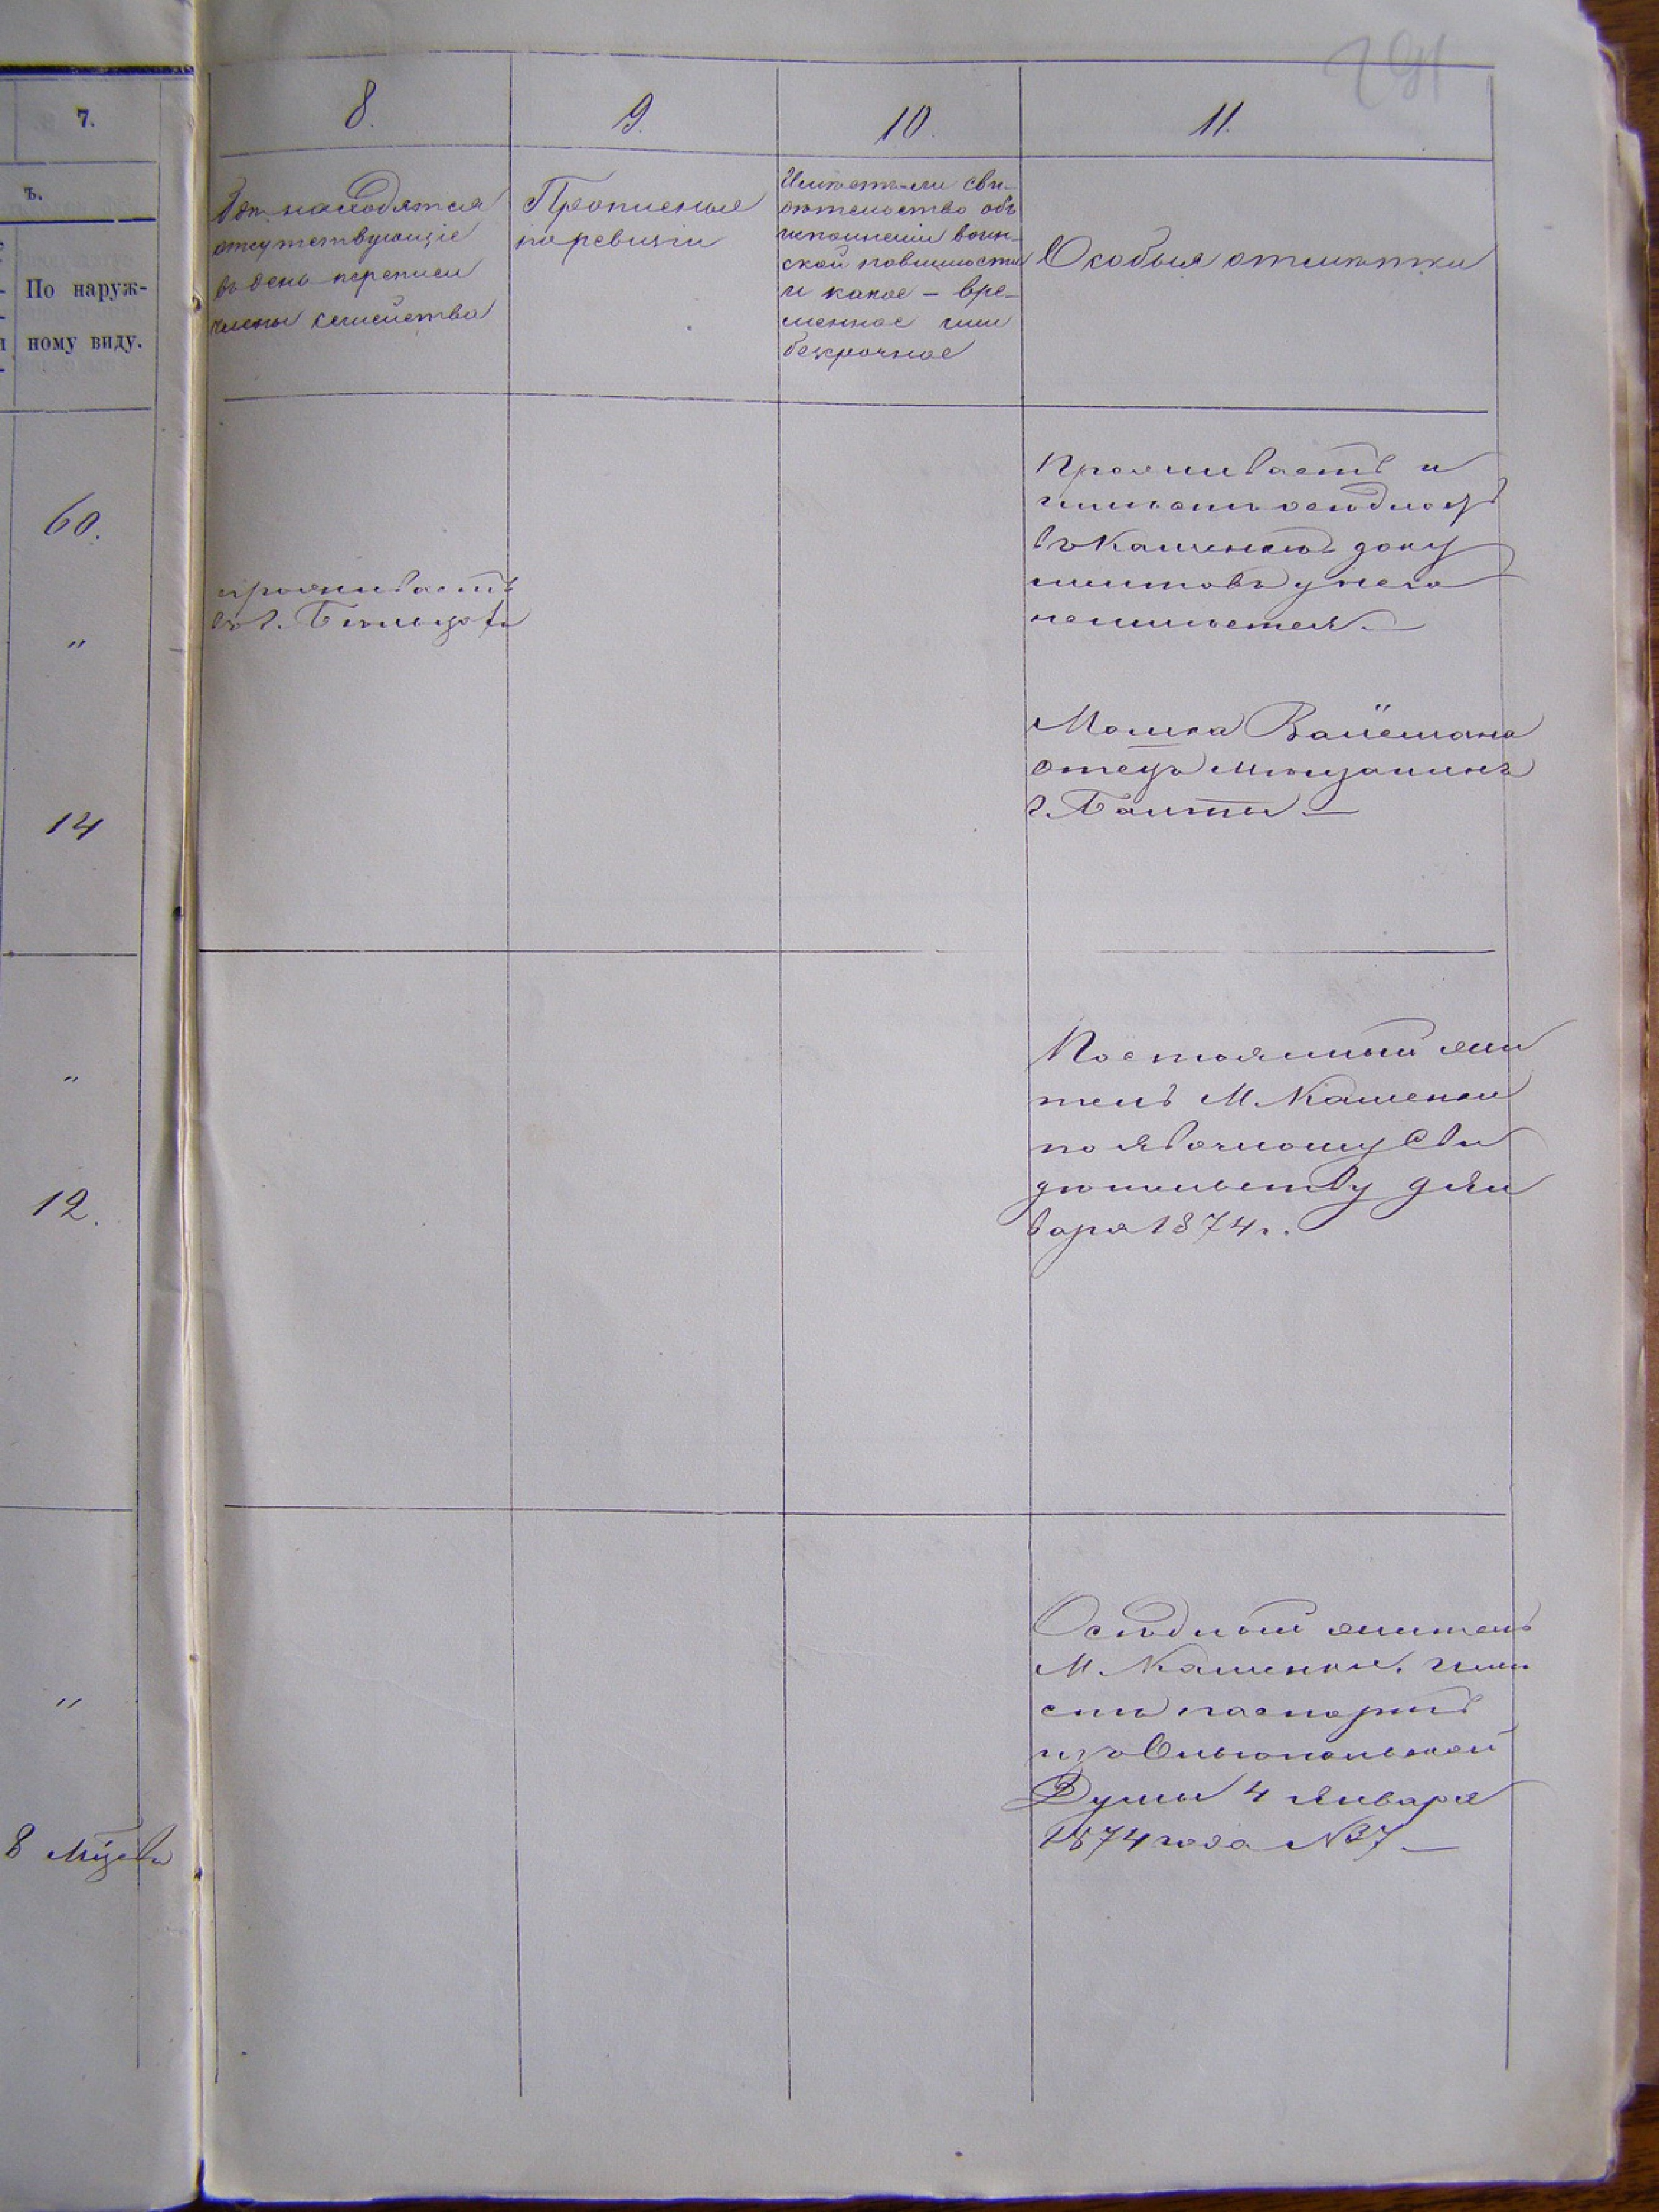 291
7.
8.
9.
10.
11.
ъ.
По наруж-
ному виду.
Гдѣ находятся
отсутствующіе
въ день переписи
члены семейства
Прописные
по ревизіи
Имѣетъ-ли сви-
дѣтельство объ
исполненіи воин-
ской повинности
и какое - вре-
менное или
безсрочное
Особыя отмѣтки
60.
проживаетъ
въ г. Бѣльцахъ
Проживаетъ и
имѣетъ осѣдлость
въ Каменкѣ доку
ментовъ у него
неимѣется. —
"
14
Мошка Вайсмана
отецъ мѣщанинъ
г. Балты —
"
12.
Постоянный жи
тель М. Каменки
по явочному Сви
дѣтельству 9 Ян
варя 1874 г.
"
8 мѣсяцевъ
Осѣдлый житель
М. Каменки. имѣ
етъ паспортъ
изъ Ольвіопольской
Думы 4 Января
1874 года № 37 —